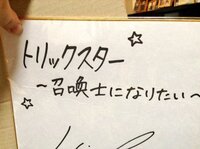 トリックスター
～召喚士になりたい～